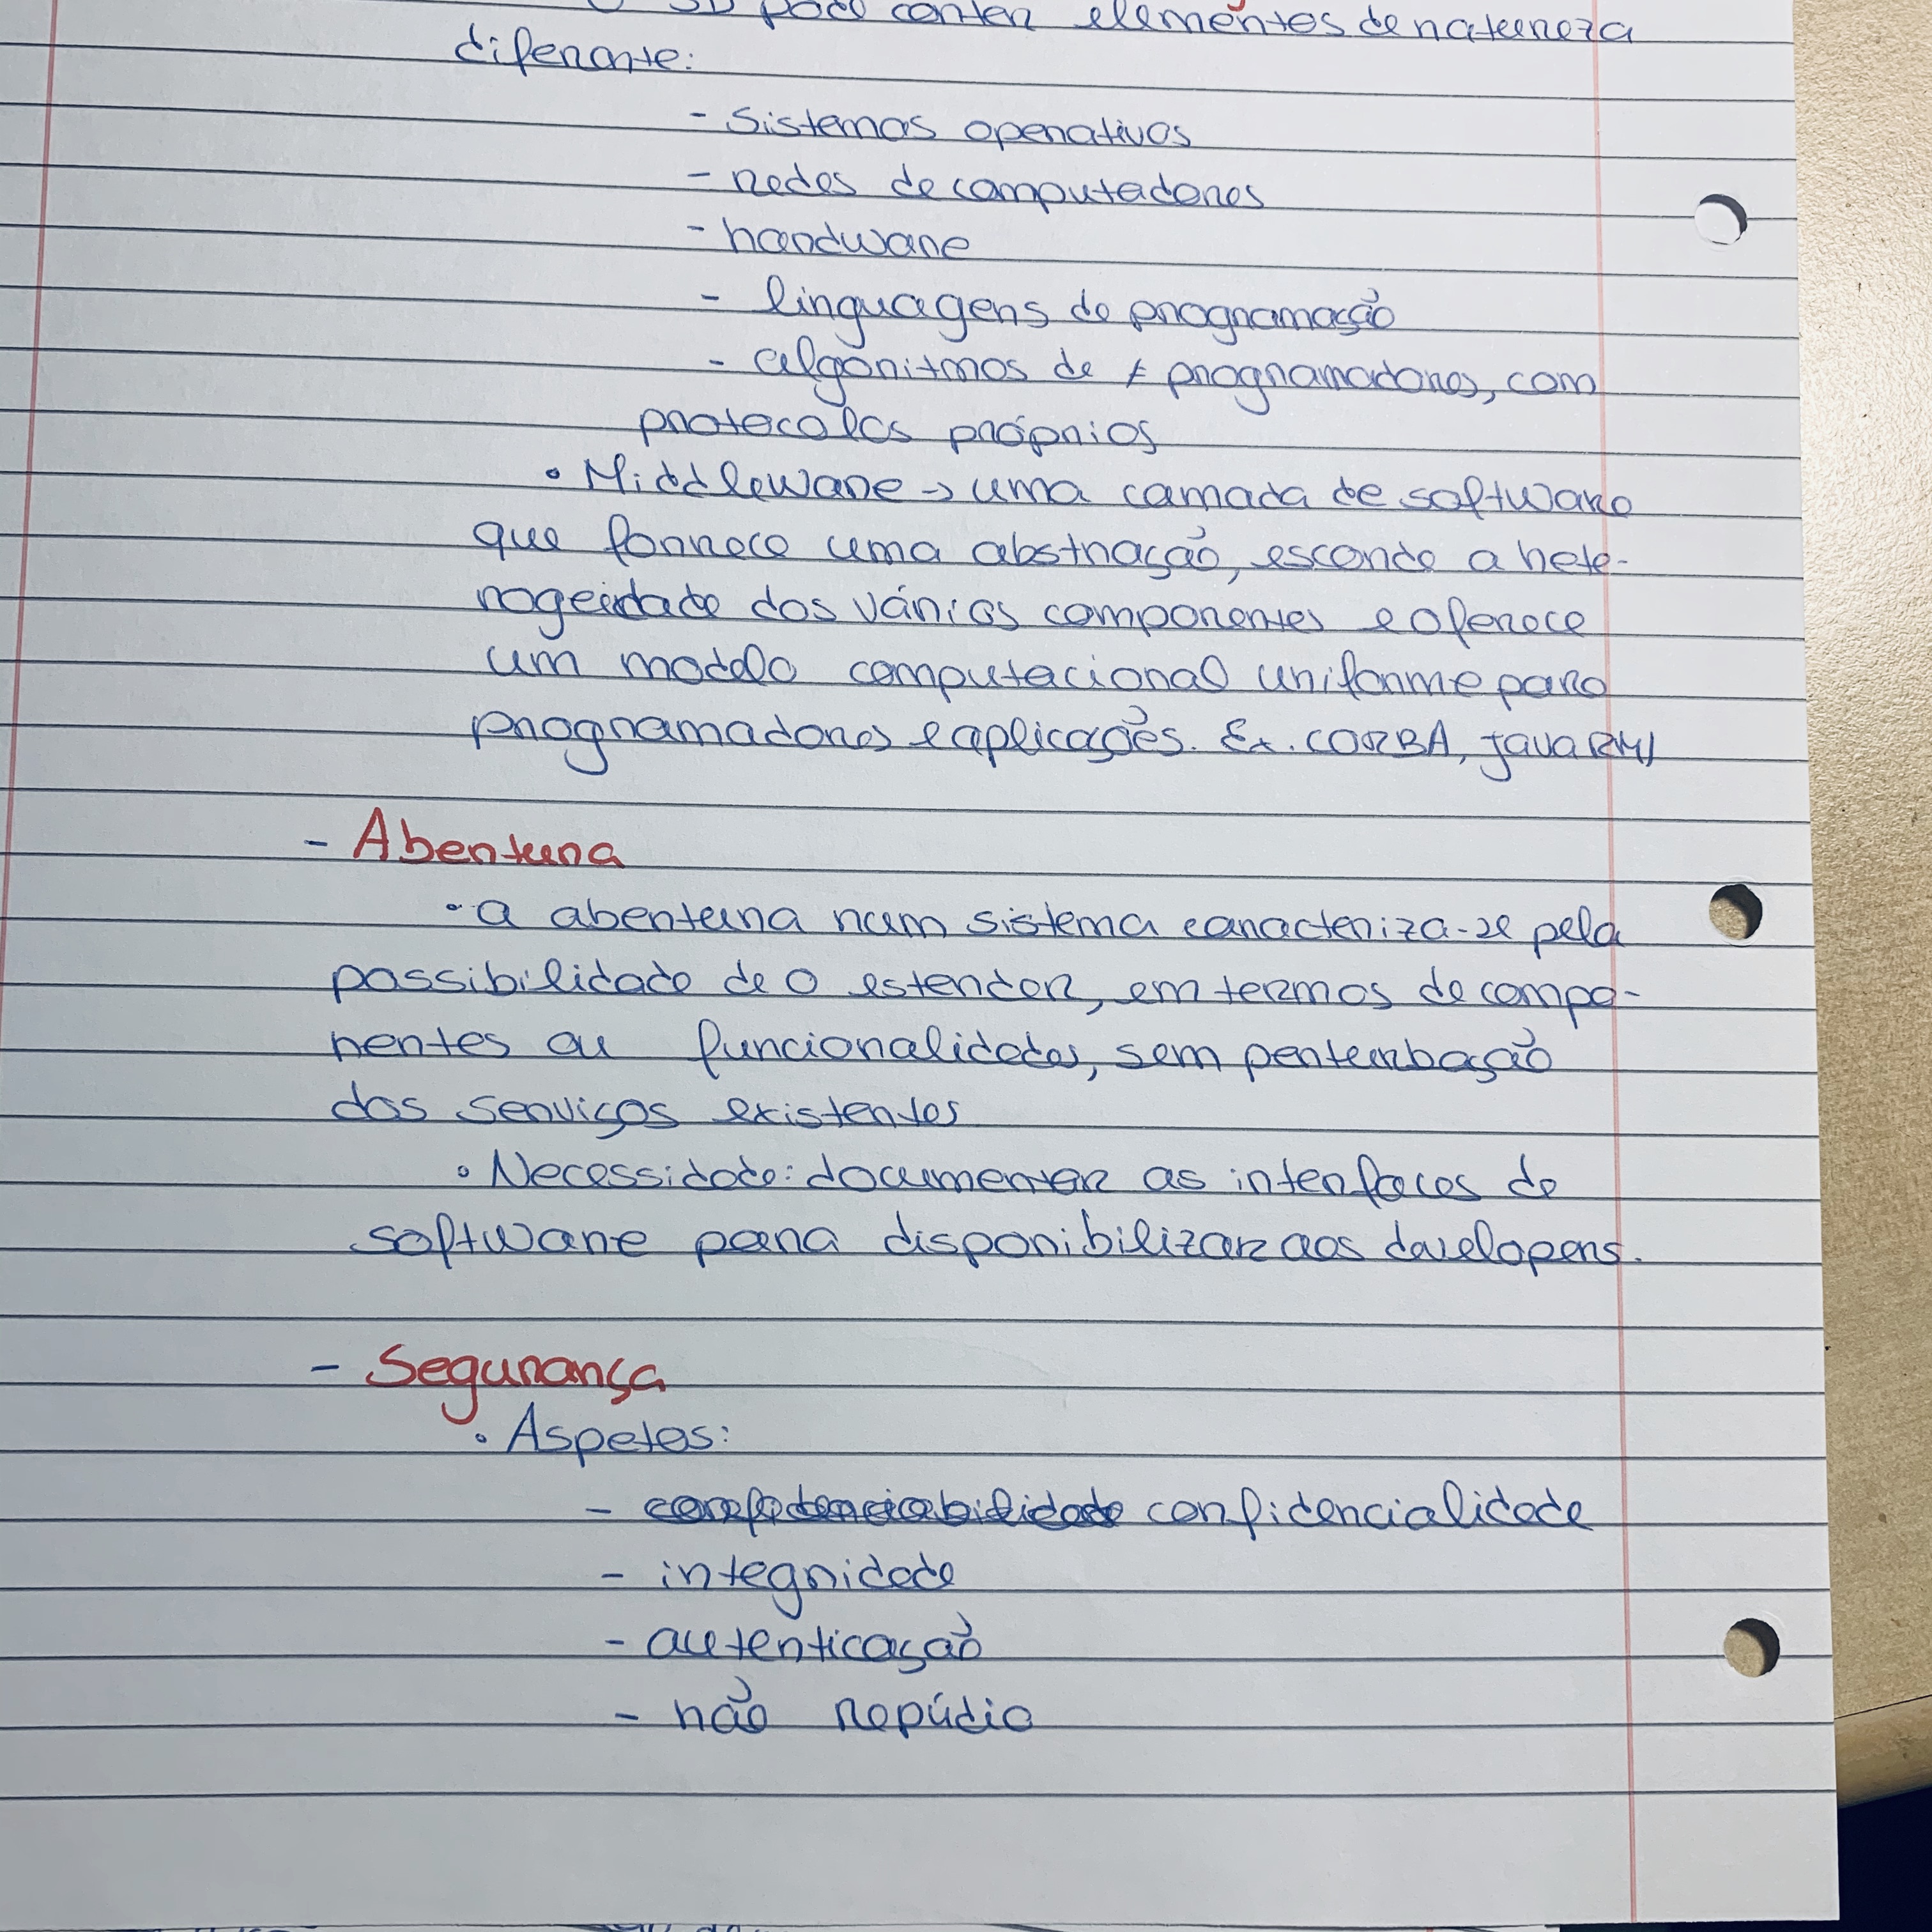 O SD pode conter elementos de natureza
diferente:
- Sistemas operativos
- redes de computadores
- hardware
- linguagens de programação
- algoritmos de ≠ programadores, com
protocolos próprios
• Middleware → uma camada de software
que fornece uma abstração, esconde a hete-
rogeidade dos vários componentes e oferece
um modelo computacional uniforme para
programadores e aplicações. Ex. CORBA, Java RMI
- Abertura
• a abertura num sistema caracteriza-se pela
possibilidade de o estender, em termos de compo-
nentes ou funcionalidades, sem perturbação
dos serviços existentes
• Necessidade: documentar as interfaces de
software para disponibilizar aos developers.
- Segurança
• Aspetos:
- confidencialidade
- integridade
- autenticação
- não repúdio